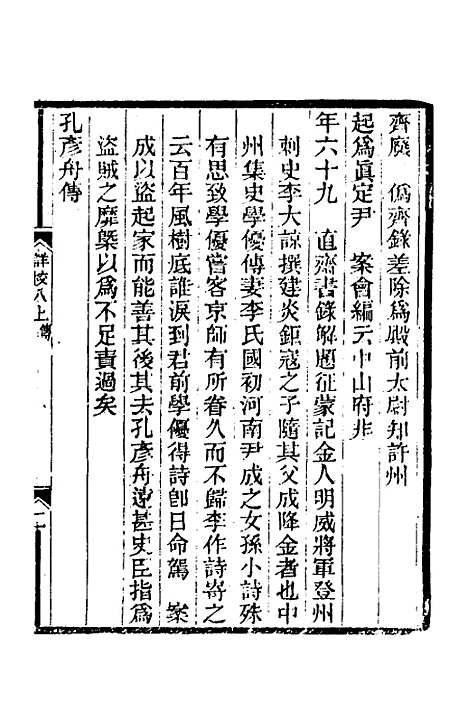 齊廢　僞齊錄差除爲殿前太尉知許州
起爲眞定尹　案會編云中山府非
年六十九　直齋書錄解題征蒙記金人明威將軍登州
刺史李大諒撰建炎鉅寇之子隨其父成降金者也中
州集史學優傳妻李氏國初河南尹成之女孫小詩殊
有思致學優嘗客京師有所眷久而不歸李作詩寄之
云百年風樹底誰淚到君前學優得詩卽日命駕　案
成以盜起家而能善其後其去孔彥舟遠甚史臣指爲
盜賊之靡槩以爲不足責過矣
孔彥舟傳
詳校八上